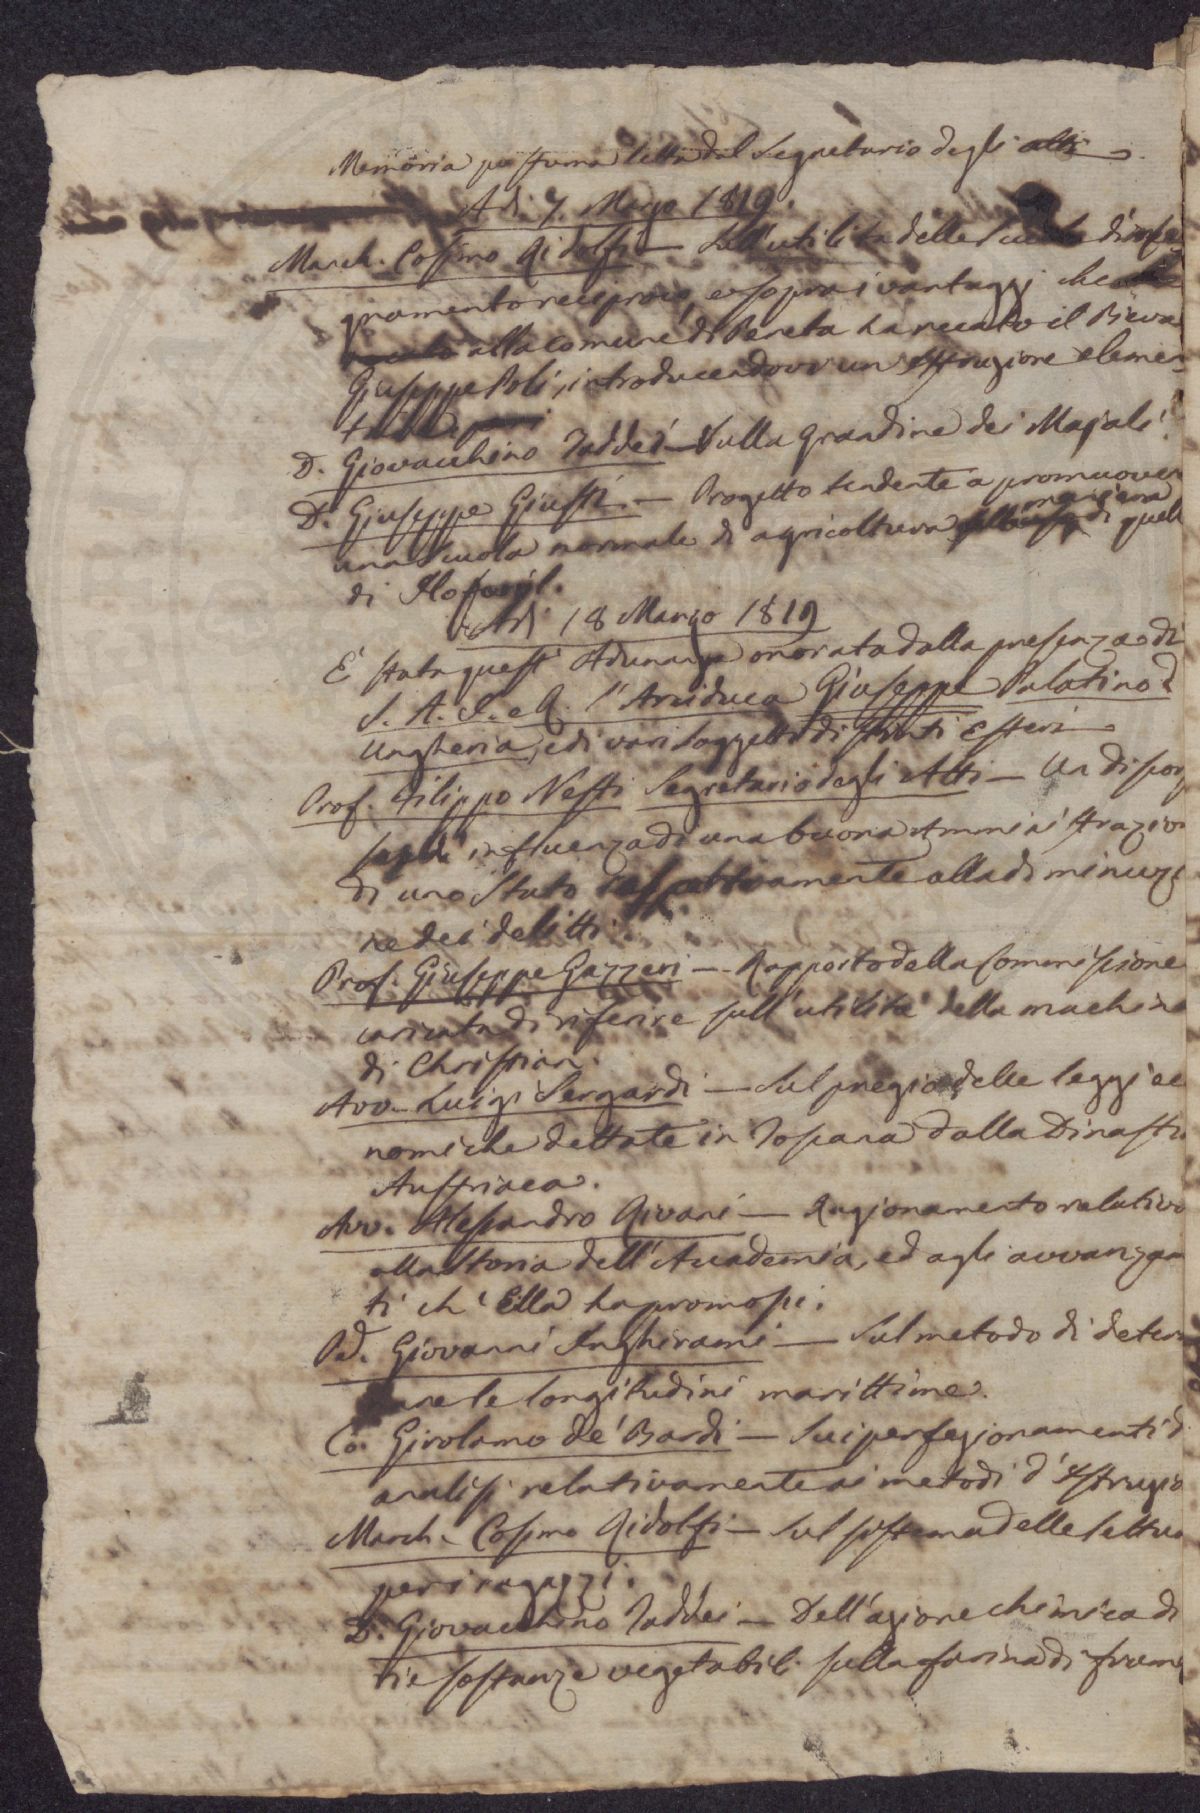 Memoria postuma letta dal Segretario degli atti
Adì 7. Marzo 1819.
March. Cosimo Ridolfi — Sull'utilità delle Scuole d'inse
gnamento reciproco, e sopra i vantaggi che
alla comune di Pereta ha recato il Pieva
Giuseppe Poli, introducendovi un'istruzione elemen
D. Giovacchino Taddei — Sulla grandine dei Majali.
D. Giuseppe Giusti. — Progetto tendente a promuover
una Scuola normale di agricoltura maniera di quell
di Hofwil.
Adì 18 Marzo 1819
È stata quest'Adunanza onorata dalla presenza di
S. A. I. e R. l'Arciduca Giuseppe Palatino d
Ungheria, e di vari Soggetti distinti Esteri
Prof. Filippo Nesti Segretario degli Atti — Un discors
influenza di una buona Amministrazion
di uno Stato rispettivamente alla diminuzi
ne dei delitti.
Prof. Giuseppe Gazzeri — Rapporto della Commissione
caricata di riferire sull'utilità della machina
di Christian.
Avv. Luigi Sergardi — Sul pregio delle leggi ec
nomiche dettate in Toscana dalla Dinasti
Austriaca.
Avv. Alessandro Rivani — Ragionamento relativo
alla Storia dell'Accademia, ed agli avvanzam
ti ch'Ella ha promossi.
Pd. Giovanni Inghirami — Sul metodo di deter
nare le longitudini marittime.
Co. Girolamo de' Bardi — Sui perfezionamenti d
analisi relativamente ai metodi d'istruzio
March. Cosimo Ridolfi — Sul sistema delle lettu
per i ragazzi.
D. Giovacchino Taddei — Dell'azione chimica di
rie sostanze vegetabili sulla farina di frum